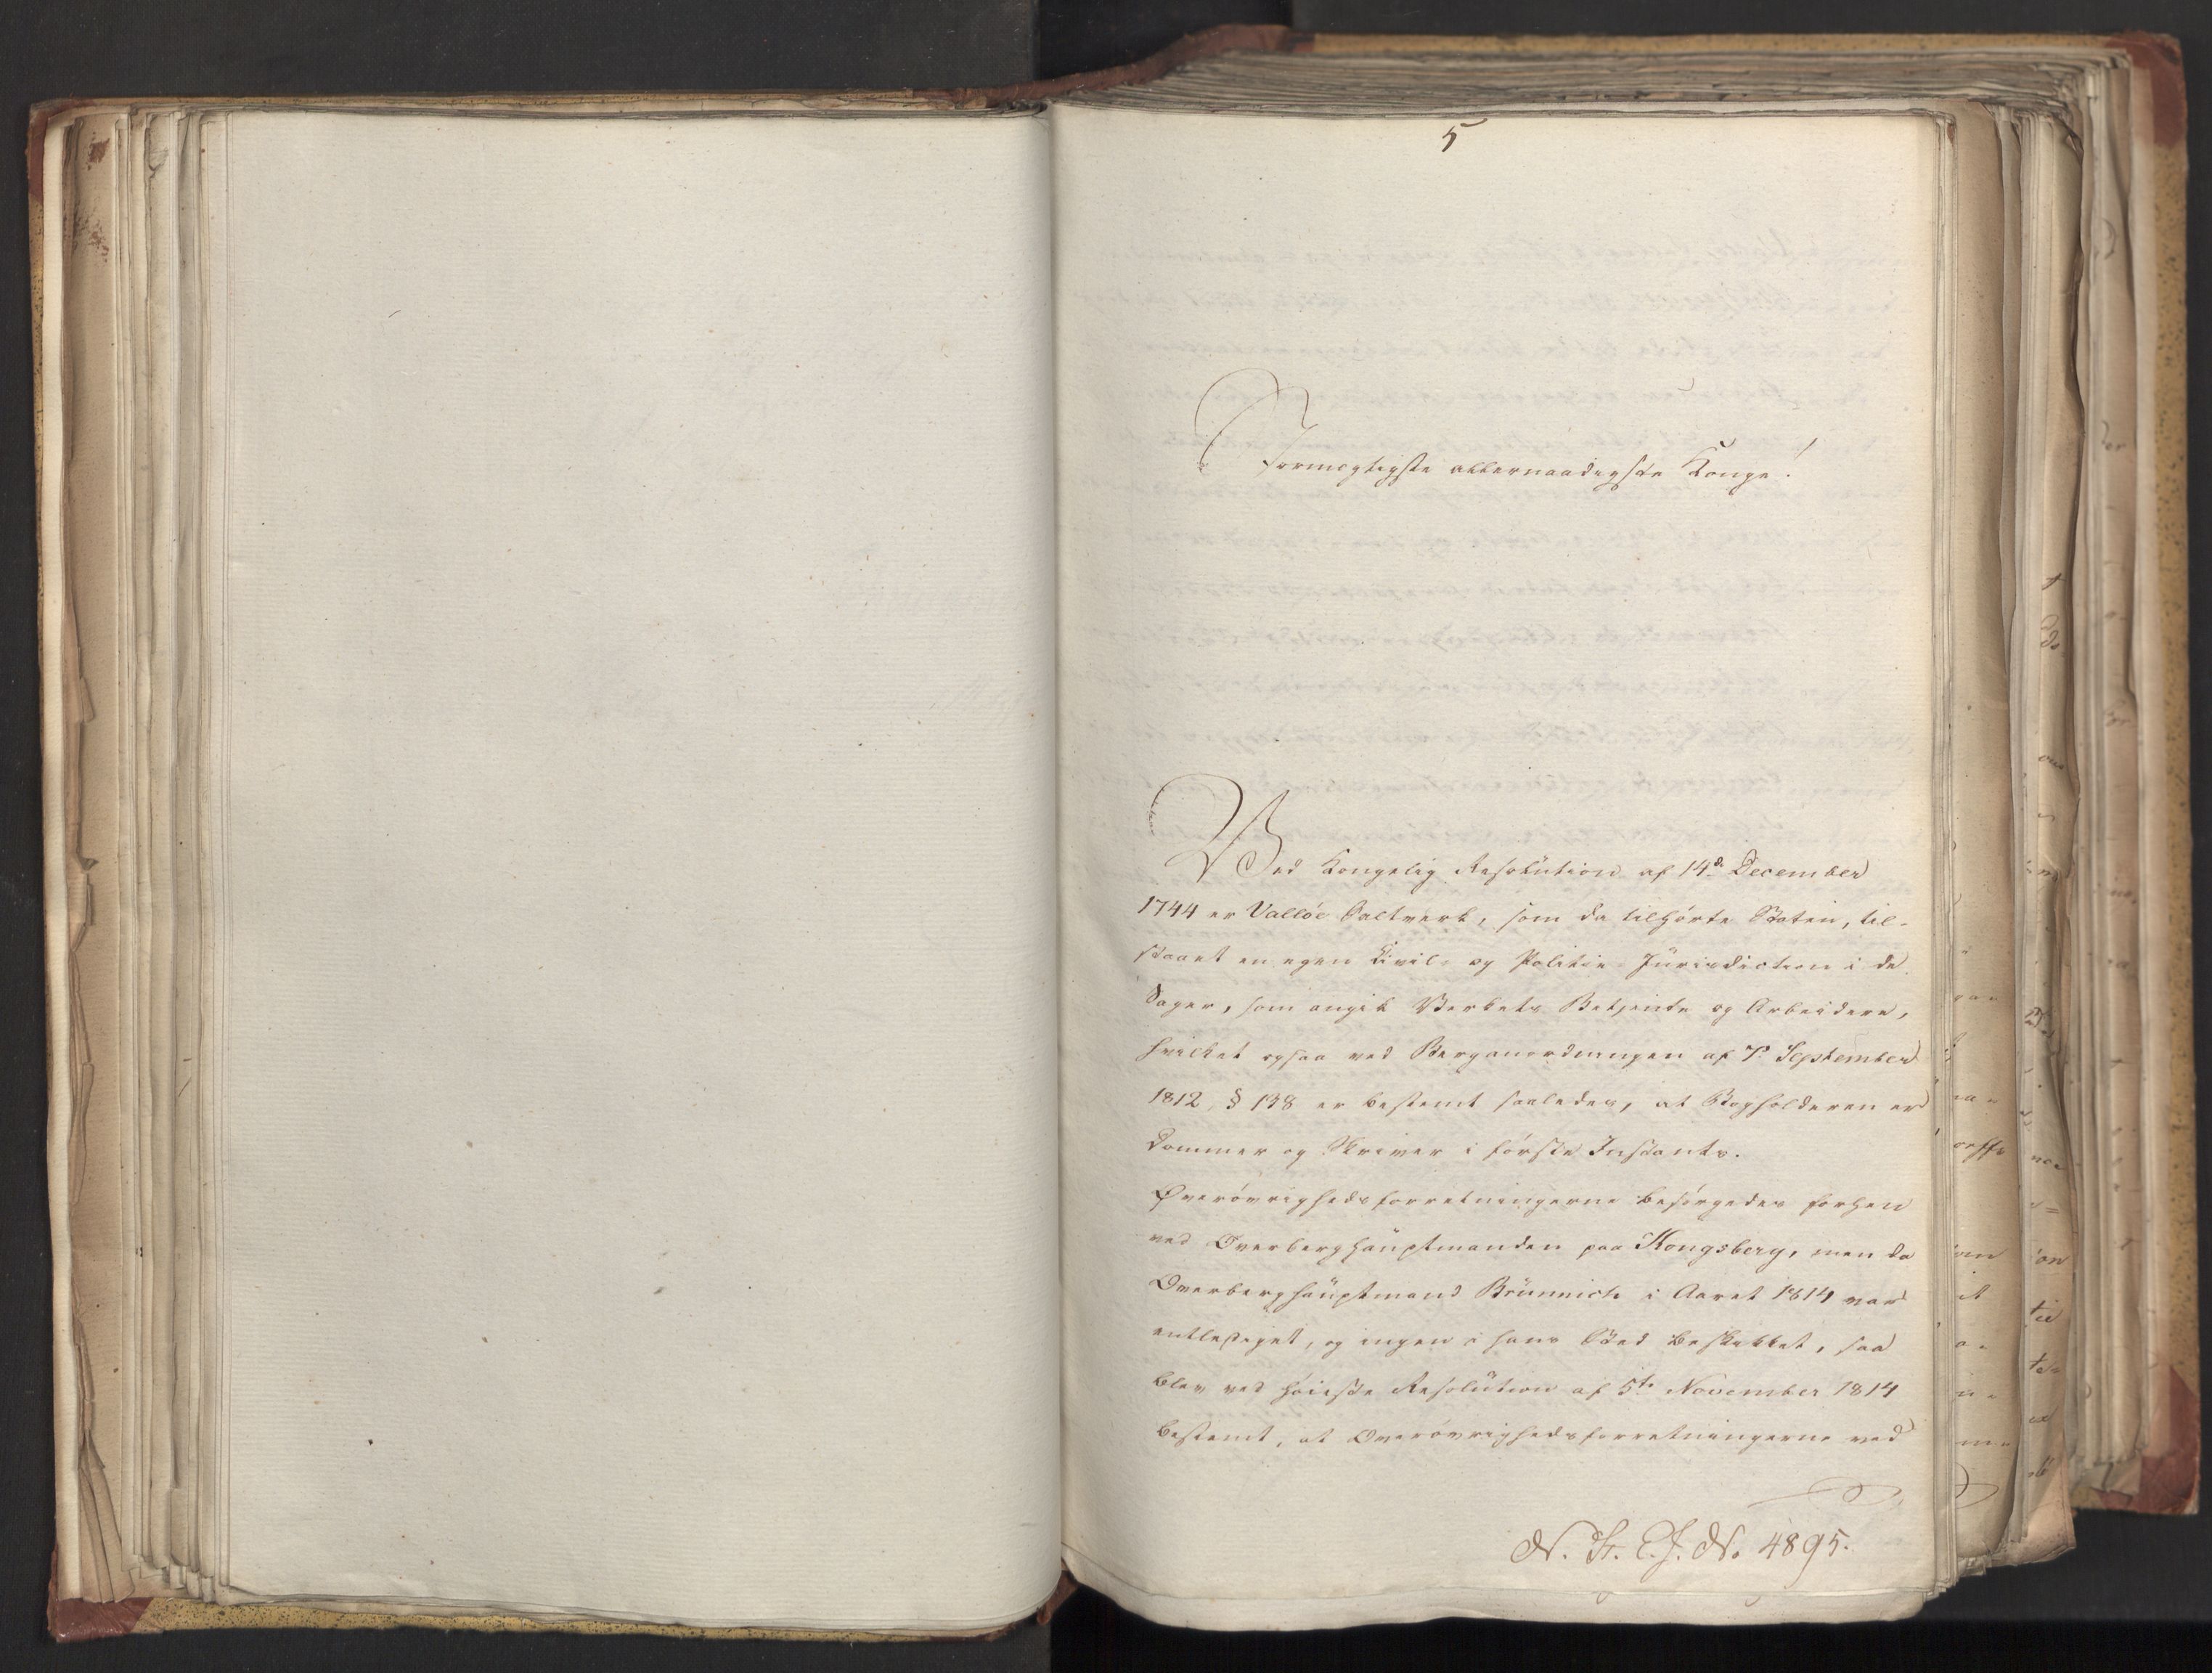 5
Stormægtigste allernaadigste Konge!
Ved Kongelig Resolution af 14de December
1744 er Valløe Saltverk, som da tilhørte Staten, til-
staaet en egen Civil- og Politie Jurisdiction i de
Sager, som angik Verkets Betjente og Arbeidere,
hvilket ogsaa ved Berganordningen af 7de September
1812, § 138 er bestemt saaledes, at Bogholderen er
Dommer og Skriver i første Instants.
Overøvrighedsforretningerne besørgedes forhen
ved Overberghauptmanden paa Kongsberg, men da
Overberghauptmand Brünnich i Aaret 1814 var
entlediget, og ingen i hans Sted beskikket, saa
blev ved høieste Resolution af 5te November 1814
bestemt, at Overøvrighedsforretningerne ved
N. 4895.